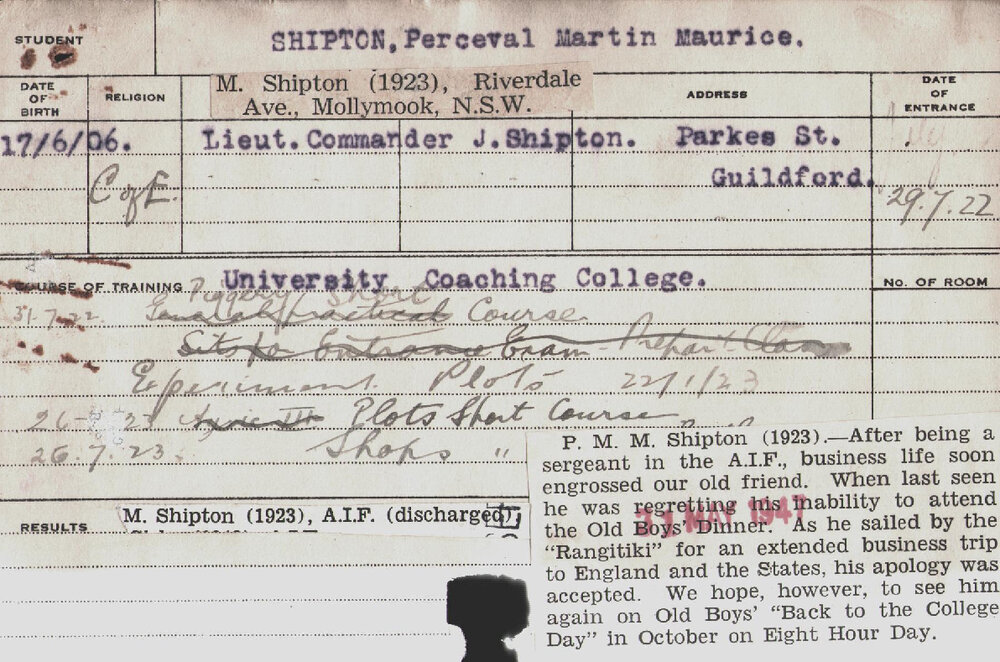 STUDENT
SHIPTON, Perceval Martin Maurice.
DATE OF BIRTH
RELIGION
M. Shipton (1923), Riverdale
Ave., Mollymook, N.S.W.
ADDRESS
DATE OF ENTRANCE
17/6/06.
Lieut. Commander J. Shipton. Parkes St.
Guildford.
C of E.
29.7.22
COURSE OF TRAINING
University Coaching College.
No. OF ROOM
Piggery Short
31.7.22 Course
Sits for Entrance Exam
Experiment Plots 22/1/23
23 Plots Short Course
26.7.23. Shops "
RESULTS
M. Shipton (1923), A.I.F. (discharged)
31 MAY 1947
P. M. M. Shipton (1923).—After being a
sergeant in the A.I.F., business life soon
engrossed our old friend. When last seen
he was regretting his inability to attend
the Old Boys' Dinner. As he sailed by the
"Rangitiki" for an extended business trip
to England and the States, his apology was
accepted. We hope, however, to see him
again on Old Boys' "Back to the College
Day" in October on Eight Hour Day.